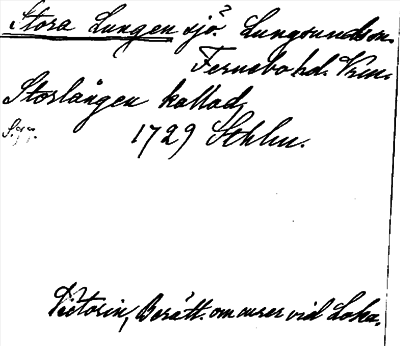 Stora Lungen sjö? Lungsunds sn.
Fernebo hd. Vrm.
Storlången kallad
1729 Sthlm.
Victorin, Berätt. om curer vid Loka.